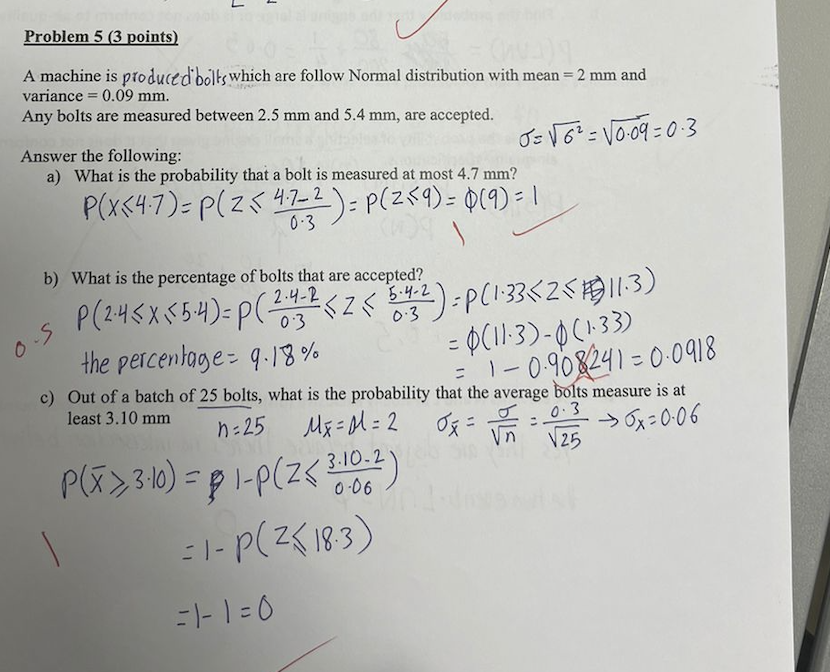 Problem 5 (3 points)
A machine is produced bolts which are follow Normal distribution with mean = 2 mm and
variance = 0.09 mm.
Any bolts are measured between 2.5 mm and 5.4 mm, are accepted.
σ = √σ² = √0.09 = 0.3
Answer the following:
a) What is the probability that a bolt is measured at most 4.7 mm?
P(X≤4.7) = P(Z ≤ (4.7-2)/0.3) = P(Z≤9) = φ(9) = 1
1
b) What is the percentage of bolts that are accepted?
P(2.4≤X≤5.4) = P((2.4-2)/0.3 ≤ Z ≤ (5.4-2)/0.3) = P(1.33≤Z≤11.3)
= φ(11.3) - φ(1.33)
0.5
the percentage = 9.18% = 1 - 0.908241 = 0.0918
c) Out of a batch of 25 bolts, what is the probability that the average bolts measure is at
least 3.10 mm
n=25 μx̄ = μ = 2 σx̄ = σ/√n = 0.3/√25 → σx̄ = 0.06
P(x̄ ≥ 3.10) = 1 - P(Z ≤ (3.10-2)/0.06)
1
= 1 - P(Z ≤ 18.3)
= 1 - 1 = 0